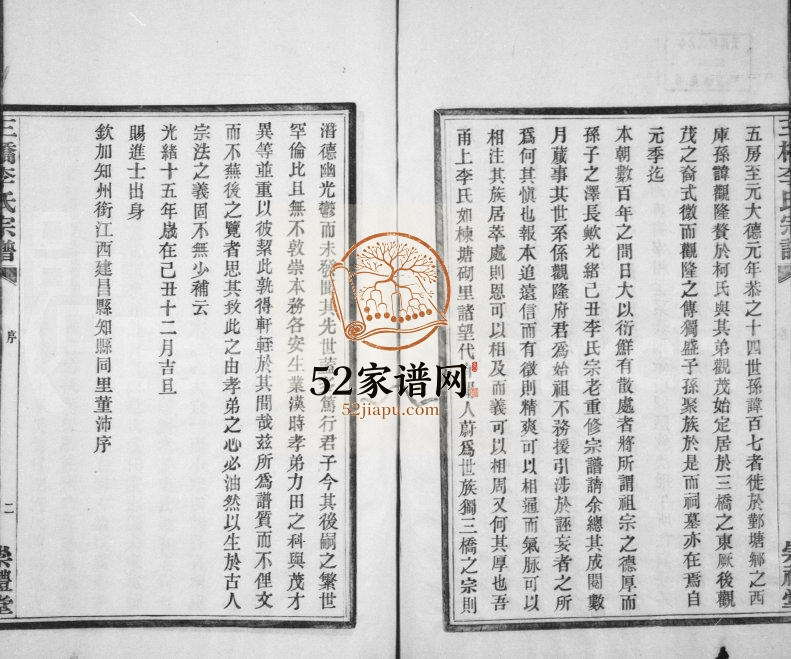 三橋李氏宗譜
五房至元大德元年恭之十四世孫諱百七者徙於鄞塘鄉之西
庫孫諱觀隆贅於柯氏與其弟觀茂始定居於三橋之東厥後觀
茂之裔式微而觀隆之傳獨盛子孫聚族於是而祠墓亦在焉自
元季迄
本朝數百年之間日大以衍鮮有散處者將所謂祖宗之德厚而
孫子之澤長歟光緒己丑李氏宗老重修宗譜請余總其成閱數
月蕆事其世系係觀隆府君為始祖不務援引涉於誣妄者之所
為何其慎也報本追遠信而有徵則精爽可以相通而氣脉可以
相注其族居萃處則恩可以相及而義可以相周又何其厚也吾
甬上李氏如棟塘砌里諸望代人蔚為世族獨三橋之宗則
崇禮堂
潛德幽光鬱而未發聞其先世篤行君子今其後嗣之繁世
罕倫比且無不敦崇本務各安生業漢時孝弟力田之科與茂才
異等並重以彼絜此孰得軒輊於其間哉茲所為譜質而不俚文
而不蕪後之覽者思其致此之由孝弟之心必油然以生於古人
宗法之義固不無少補云
光緒十五年歲在己丑十二月吉旦
賜進士出身
欽加知州銜江西建昌縣知縣同里董沛序
三橋李氏宗譜
序
二
崇禮堂
52家谱网
52jiapu.com